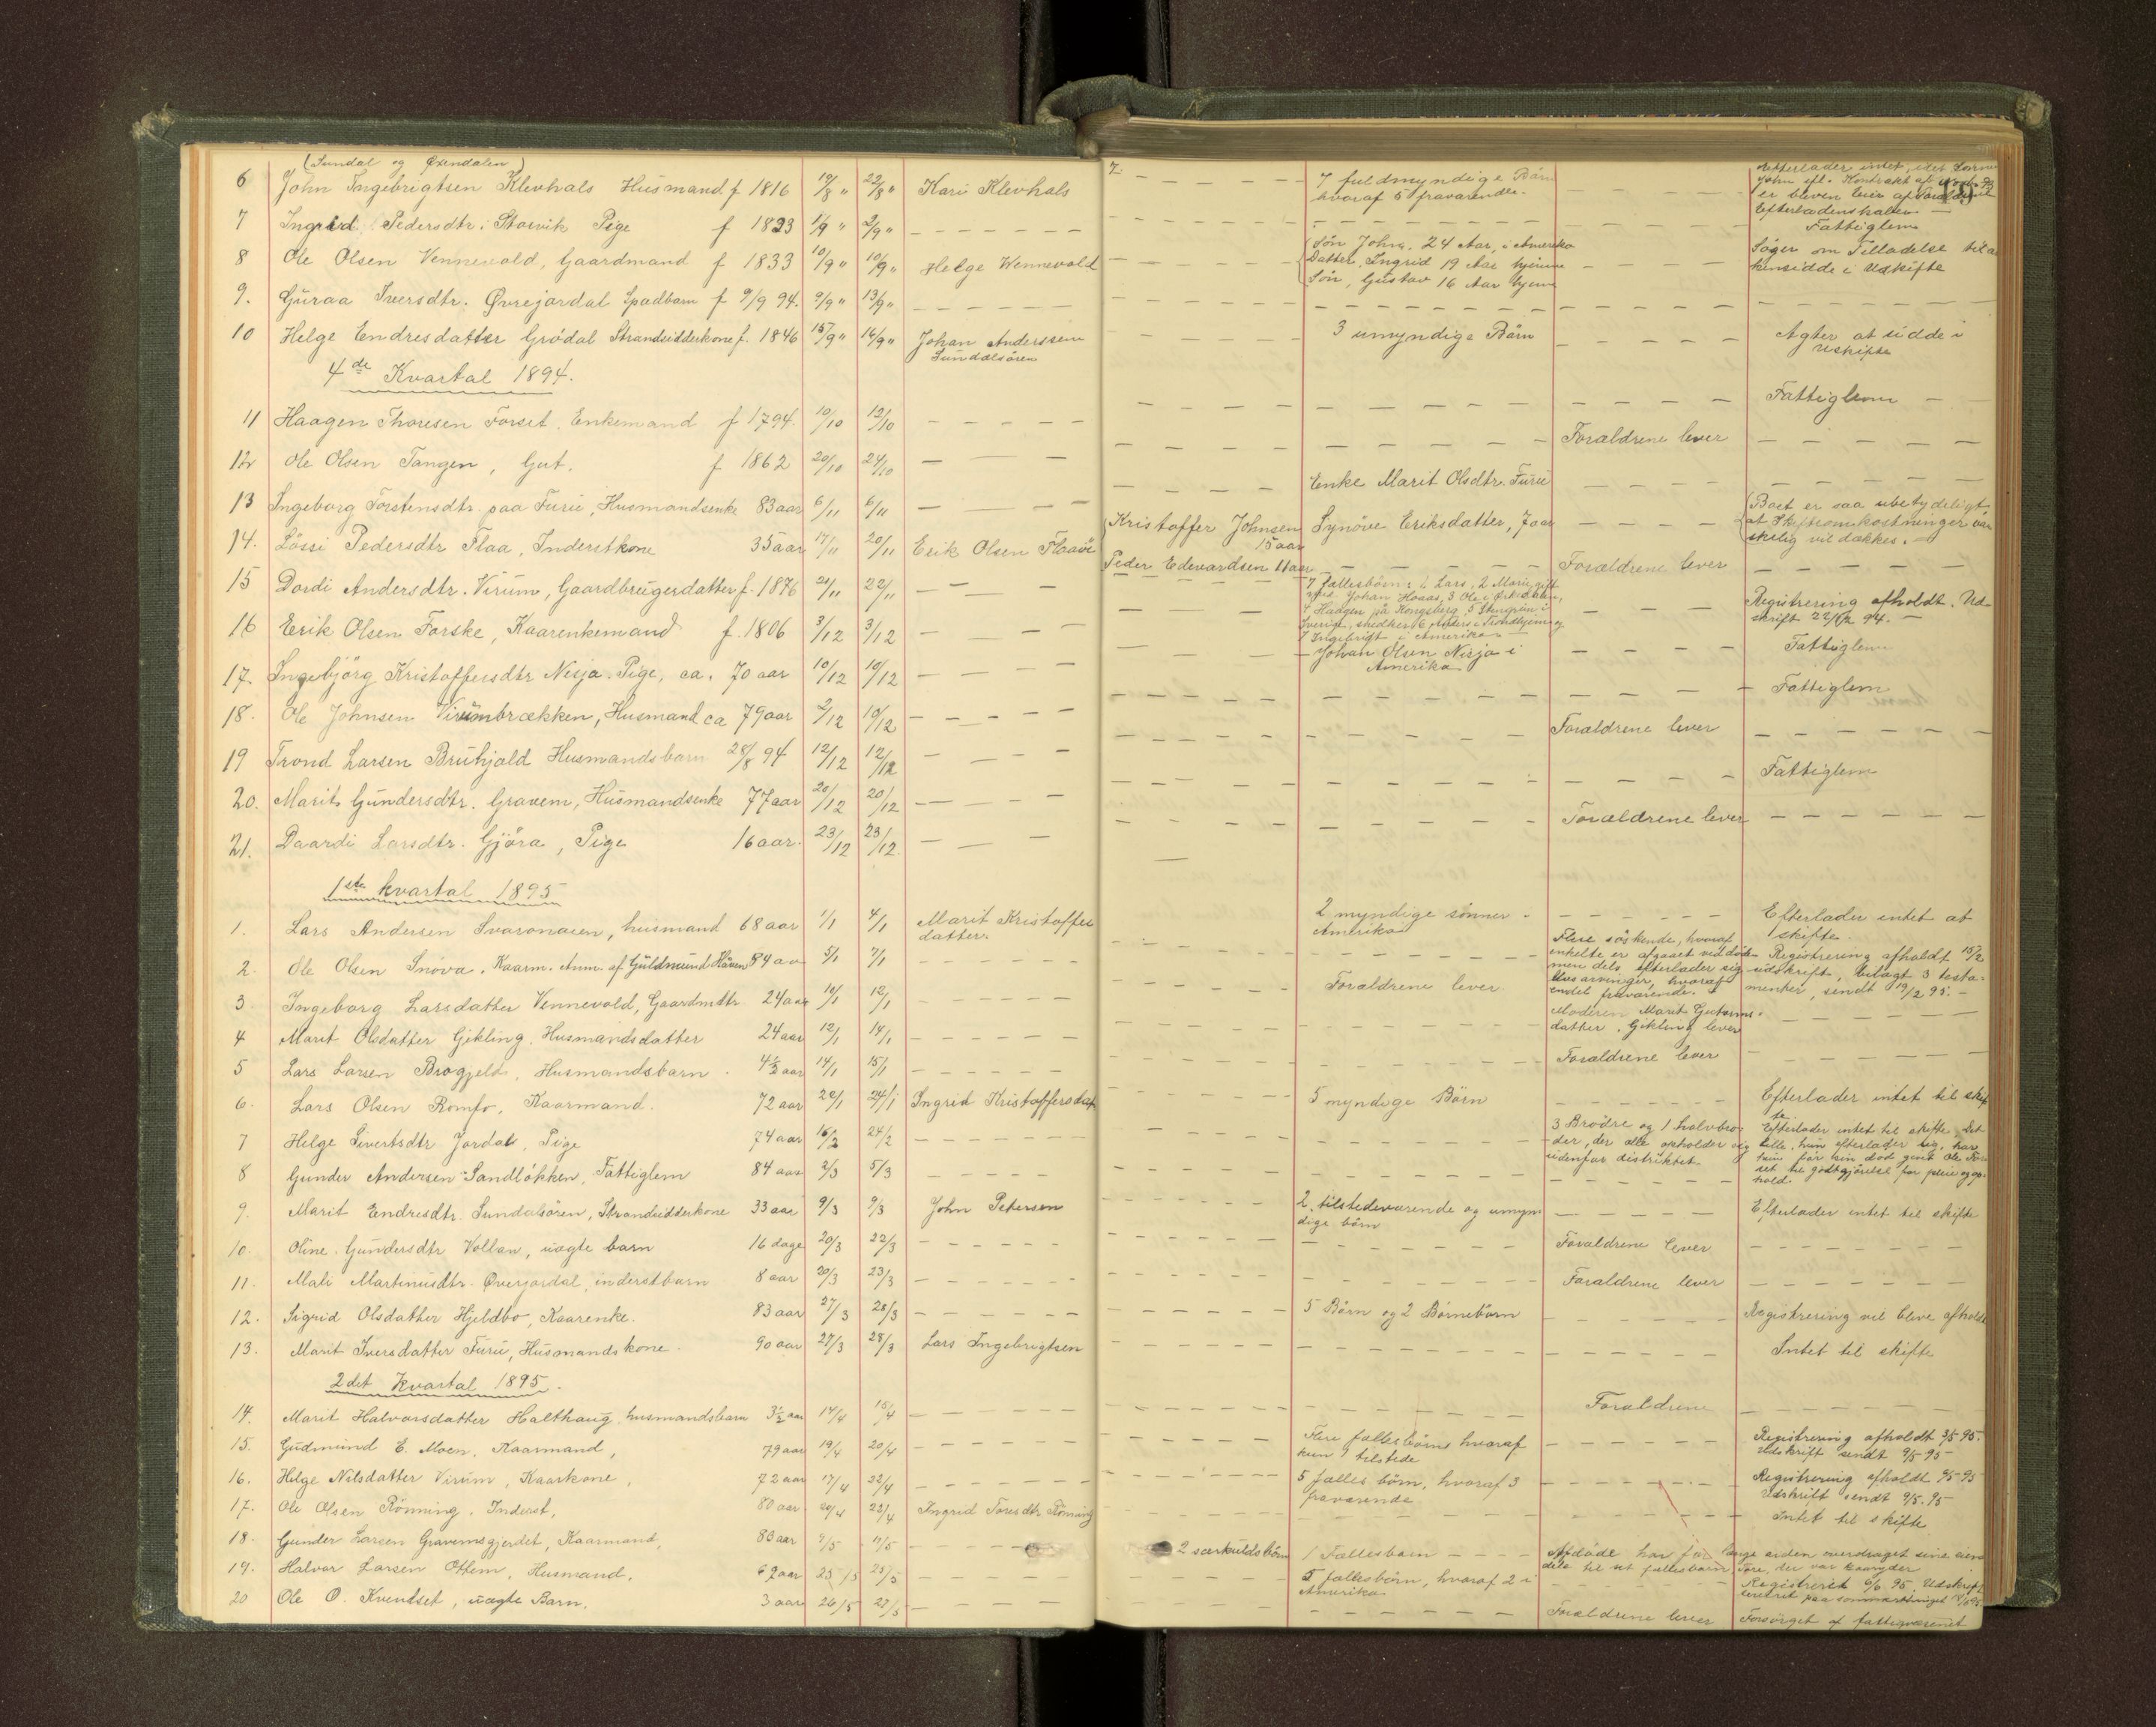 (Sundal og Øxendalen)
6 John Ingebrigtsen Klevhals Husmand f 1816 19/8 " 22/8 " Kari Klevhals
7 Ingrid Pedersdtr. Storvik Pige f 1823 1/9 " 2/9 " — — — — — —
8 Ole Olsen Vennevold, Gaardmand f 1833 10/9 " 10/9 " Helge Wennevold
9. Guraa Iversdtr. Øvrejordal Spædbarn f 9/9 94. 9/9 " 13/9 " — — — — —
10 Helge Endresdatter Grödal Strandsidderkone f. 1846 15/9 " 16/9 " Johan Anderssen
Sundalsören
4de Kvartal 1894.
11 Haagen Thoresen Forset. Enkemand f 1794. 10/10 12/10 — — — — —
12 Ole Olsen Tangen, Gut. f 1862 20/10 24/10 — — —
13 Ingeborg Torstensdtr. paa Furu, Husmandsenke 83 aar 6/11 6/11 — — — —
14. Lössi Pedersdtr Flaa, Inderstkone 35 aar 17/11 20/11 Erik Olsen Flaaöi
15 Dordi Andersdtr. Virum, Gaardbrugerdatter f. 1876 21/11 22/11 — — —
16 Erik Olsen Forske, Kaarenkemand f. 1806 3/12 3/12 — — —
17. Ingebjörg Kristoffersdtr Nisja. Pige, ca. 70 aar 10/12 10/12 — — —
18. Ole Johnsen Virumbrækken, Husmand ca 79 aar 2/12 10/12 — — — — —
19 Trond Larsen Bruhjald Husmandsbarn 28/8 94 12/12 12/12 — — —
20. Marit Gundersdtr. Gravem, Husmandsenke 77 aar 20/12 20/12 — — — —
21. Daardi Larsdtr. Gjöra, Pige 16 aar. 23/12 23/12. — — —
1ste kvartal 1895
1. Lars Andersen Svaronaien, husmand 68 aar 1/1 4/1 Marit Kristoffer
datter.
2. Ole Olsen Snöva. Kaarm. Anm. af Guldmund Häven 84 aar 5/1 7/1
3 Ingeborg Larsdatter Vennevold, Gaardmdtr. 24 aar 10/1 12/1 — — — — —
4 Marit Olsdatter Gikling. Husmandsdatter 24 aar 12/1 14/1 — — — — —
5 Lars Larsen Brogjeld, Husmandsbarn. 4½ aar 14/1 15/1 — — — — —
6. Lars Olsen Romfo, Kaarmand. 72 aar 22/1 24/1 Ingrid Kristoffersdat
7 Helge Sivertsdtr Jordal, Pige 74 aar 16/2 24/2 — — — — —
8 Gunder Andersen Sandlökken, Fattiglem 84 aar 2/3 5/3 — — — — —
9. Marit Endresdtr. Sundalsören, Strandsidderkone 33 aar 9/3 9/3 John Petersen
10. Oline Gundersdtr Vollan, uægte barn 16 dage 20/3 22/3 — — — — —
11. Mali Martinusdtr. Øverjordal, inderstbarn 8 aar 20/3 23/3 — — — — —
12. Sigrid Olsdatter Hjeldbo, Kaarenke. 83 aar 27/3 28/3 — — — — —
13. Marit Iversdatter Furu, Husmandskone. 90 aar 27/3 28/3 Lars Ingebrigtsen
2det Kvartal 1895.
14. Marit Halvorsdatter Halthaug, husmandsbarn 3½ aar 14/4 15/4 — — — — —
15. Gudmund E. Moen. Kaarmand, 79 aar 19/4 20/4 — — — — —
16. Helge Nilsdatter Virum, Kaarkone, 72 aar 17/4 22/4 — — — — —
17. Ole Olsen Rönning. Inderst, 80 aar 20/4 23/4 Ingrid Toresdtr Rönning
18. Gunder Larsen Gravemsgjerdet, Kaarmand, 83 aar 9/5 11/5 — — —
19. Halvor Larsen Ottem, Husmand. 69 aar 23/5 25/5 — — — —
20 Ole O. Kvendset, uægte Barn. 3 aar 26/5 27/5 — — — —
7 fuldmyndige Börn
hvoraf 5 fraværende.
Efterlader intet, idet Sönnen
John
er bleven Eier af
Efterladenskaber
Fattiglem
Sön John. 24 Aar, i Amerika
Datter, Ingrid 19 Aar hjemme
Sön, Gustav 16 Aar hjeme
Söger om Tilladelse til at
hensidde i Uskifte
3 umyndige Börn
Agter at sidde i
uskifte
Fattiglem
Forældrene lever
Enke Marit Olsdtr. Furu
Kristoffer Johnsen
15 aar
Peder Edevardsen 11 aar
Synöve Eriksdatter, 7 aar
Boet er saa ubetydeligt
at Skifteomkostninger van
skelig vil dækkes.
Forældrene lever
7 fællesbörn: 1 Lars, 2 Marit, gift
med Johan Hoaas, 3 Ole i Örkedalen,
4 Haagen på Kongsberg, 5 i
Sverige, snedker, 6 Anders i Trondhjem og
7 Ingebrigt i Amerika
Registrering afholdt. Ud-
skrift 22/12 94.
Johan Olsen Nisja i
Amerika
Fattiglem
Fattiglem
Forældrene lever
Fattiglem
Forældrene lever
2 myndige sönner i
Amerika
Efterlader intet at
skifte.
Flere söskende, hvoraf
enkelte er afgaaet ved döden
men dels efterlader sig
livsarvinger, hvoraf
endel fraværende.
Registrering afholdt 15/2
udskrift, bilagt 3 testa-
menter, sendt 19/2 95.
Forældrene lever.
Moderen Marit Gutorms-
datter. Gikling lever
Forældrene lever
5 myndige Börn
Efterlader intet til skif
te.
3 Brödre og 1 halvbro-
der, der alle opholder sig
udenfor distriktet.
Efterlader intet til skifte. Det
lille, hun efterlader sig, har
hun för sin död givet Ole For
set til godtgjörelse for pleie og op-
hold.
2 tilstedeværende og umyn
dige börn
Efterlader intet til skifte
Forældrene lever
Forældrene lever
5 Börn og 2 Börnebörn
Registrering vil blive afholdt
Intet til skifte
Forældrene
Flere fællesbörn hvoraf
kun 1 tilstede
Registrering afholdt 3/5 95.
Udskrift sendt 9/5 95
5 fælles börn, hvoraf 3
fraværende
Registrering afholdt 9/5 95
Udskrift sendt 9/5. 95
Intet til skifte
2 særkuldsbörn
1 Fællesbarn
Afdöde har for længe siden overdraget sine eien
dele til sit fællesbarn Tore, der var kaaryder
5 fællesbörn, hvoraf 2 i
Amerika
Registreret 6/6 95. Udskrift
Forældrene lever
Forsörget af fattigvæsenet